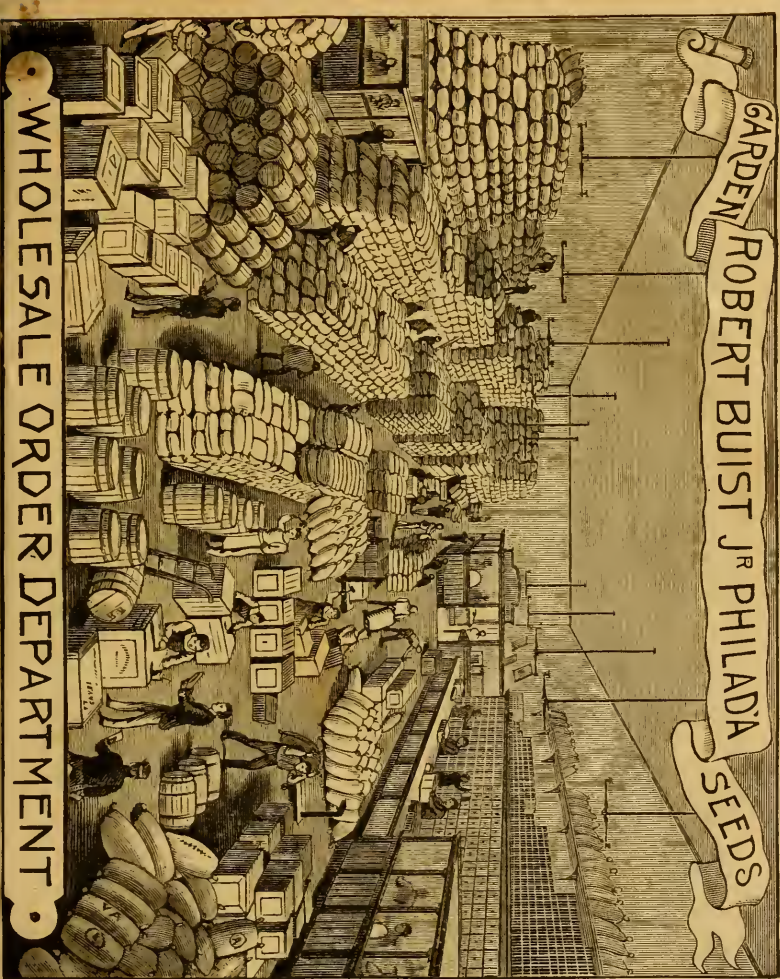 GARDEN ROBERT BUIST JR PHILAD'A SEEDS
WHOLESALE ORDER DEPARTMENT
VA